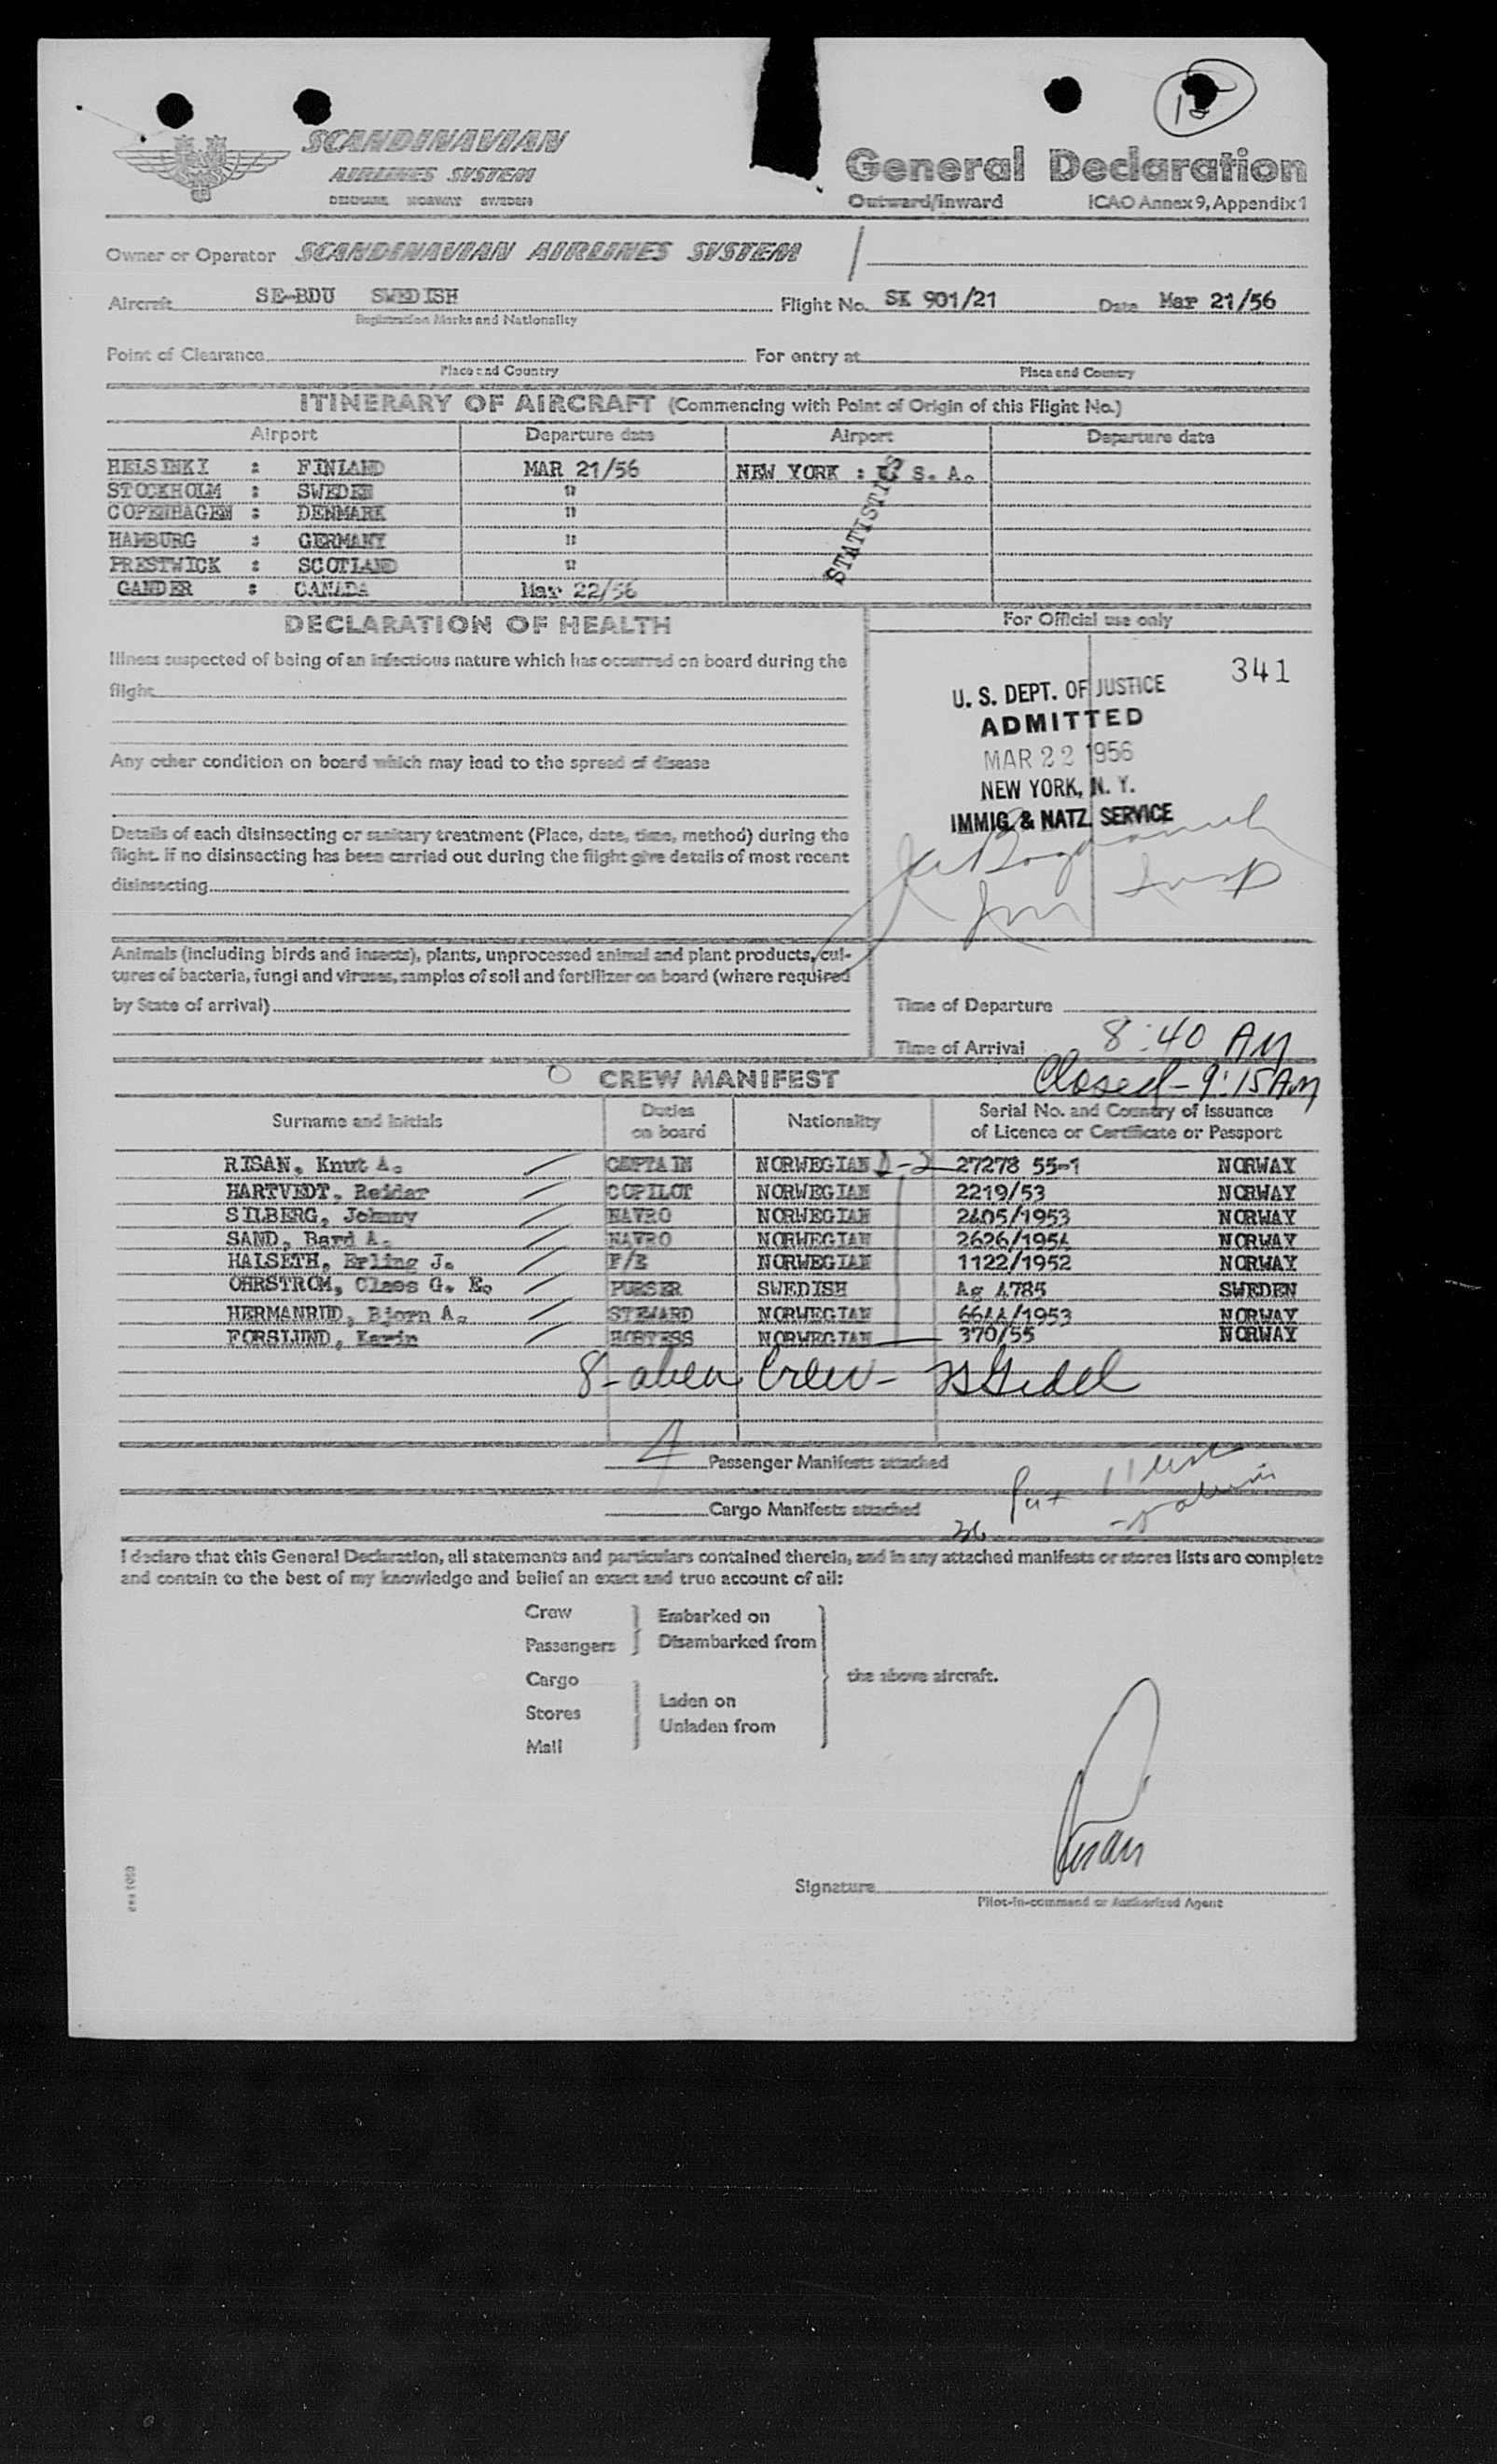 15
SCANDINAVIAN
AIRLINES SYSTEM
DENMARK NORWAY SWEDEN
General Declaration
Outward/Inward ICAO Annex 9, Appendix 1
Owner or Operator SCANDINAVIAN AIRLINES SYSTEM
Aircraft SE-BDU SWEDISH Flight No. SK 901/21 Date Mar 21/56
Registration Marks and Nationality
Point of Clearance For entry at
Place and Country Place and Country
ITINERARY OF AIRCRAFT (Commencing with Point of Origin of this Flight No.)
Airport Departure date Airport Departure date
HELSINKI : FINLAND MAR 21/56 NEW YORK : U. S. A.
STOCKHOLM : SWEDEN "
COPENHAGEN : DENMARK "
HAMBURG : GERMANY "
PRESTWICK : SCOTLAND "
GANDER : CANADA Mar 22/56
STATISTICS
DECLARATION OF HEALTH
For Official use only
Illness suspected of being of an infectious nature which has occurred on board during the
flight
341
U. S. DEPT. OF JUSTICE
ADMITTED
MAR 22 1956
NEW YORK, N. Y.
IMMIG. & NATZ. SERVICE
Any other condition on board which may lead to the spread of disease
Details of each disinsecting or sanitary treatment (Place, date, time, method) during the
flight. If no disinsecting has been carried out during the flight give details of most recent
disinsecting
Insp
Animals (including birds and insects), plants, unprocessed animal and plant products, cul-
tures of bacteria, fungi and viruses, samples of soil and fertilizer on board (where required
by State of arrival)
Time of Departure
Time of Arrival 8:40 AM
Closed - 9:15 AM
CREW MANIFEST
Surname and Initials Duties on board Nationality Serial No. and Country of Issuance of Licence or Certificate or Passport
RISAN, Knut A. CEPTAIN NORWEGIAN D-2 27278 55-1 NORWAY
HARTVEDT, Reidar COPILOT NORWEGIAN 2219/53 NORWAY
SILBERG, Johnny NAVRO NORWEGIAN 2405/1953 NORWAY
SAND, Bard A. NAVRO NORWEGIAN 2626/1954 NORWAY
HALSETH, Erling J. F/E NORWEGIAN 1122/1952 NORWAY
OHRSTROM, Claes G. E. PURSER SWEDISH Ag 4785 SWEDEN
HERMANRUD, Bjorn A. STEWARD NORWEGIAN 6644/1953 NORWAY
FORSLUND, Karin HOSTESS NORWEGIAN 370/55 NORWAY
8 - alien Crew -
4 Passenger Manifests attached
Cargo Manifests attached
36
I declare that this General Declaration, all statements and particulars contained therein, and in any attached manifests or stores lists are complete
and contain to the best of my knowledge and belief an exact and true account of all:
Crew Embarked on
Passengers Disembarked from
Cargo the above aircraft.
Stores Laden on
Unladen from
Mail
Risan
Signature
Pilot-in-command or Authorized Agent